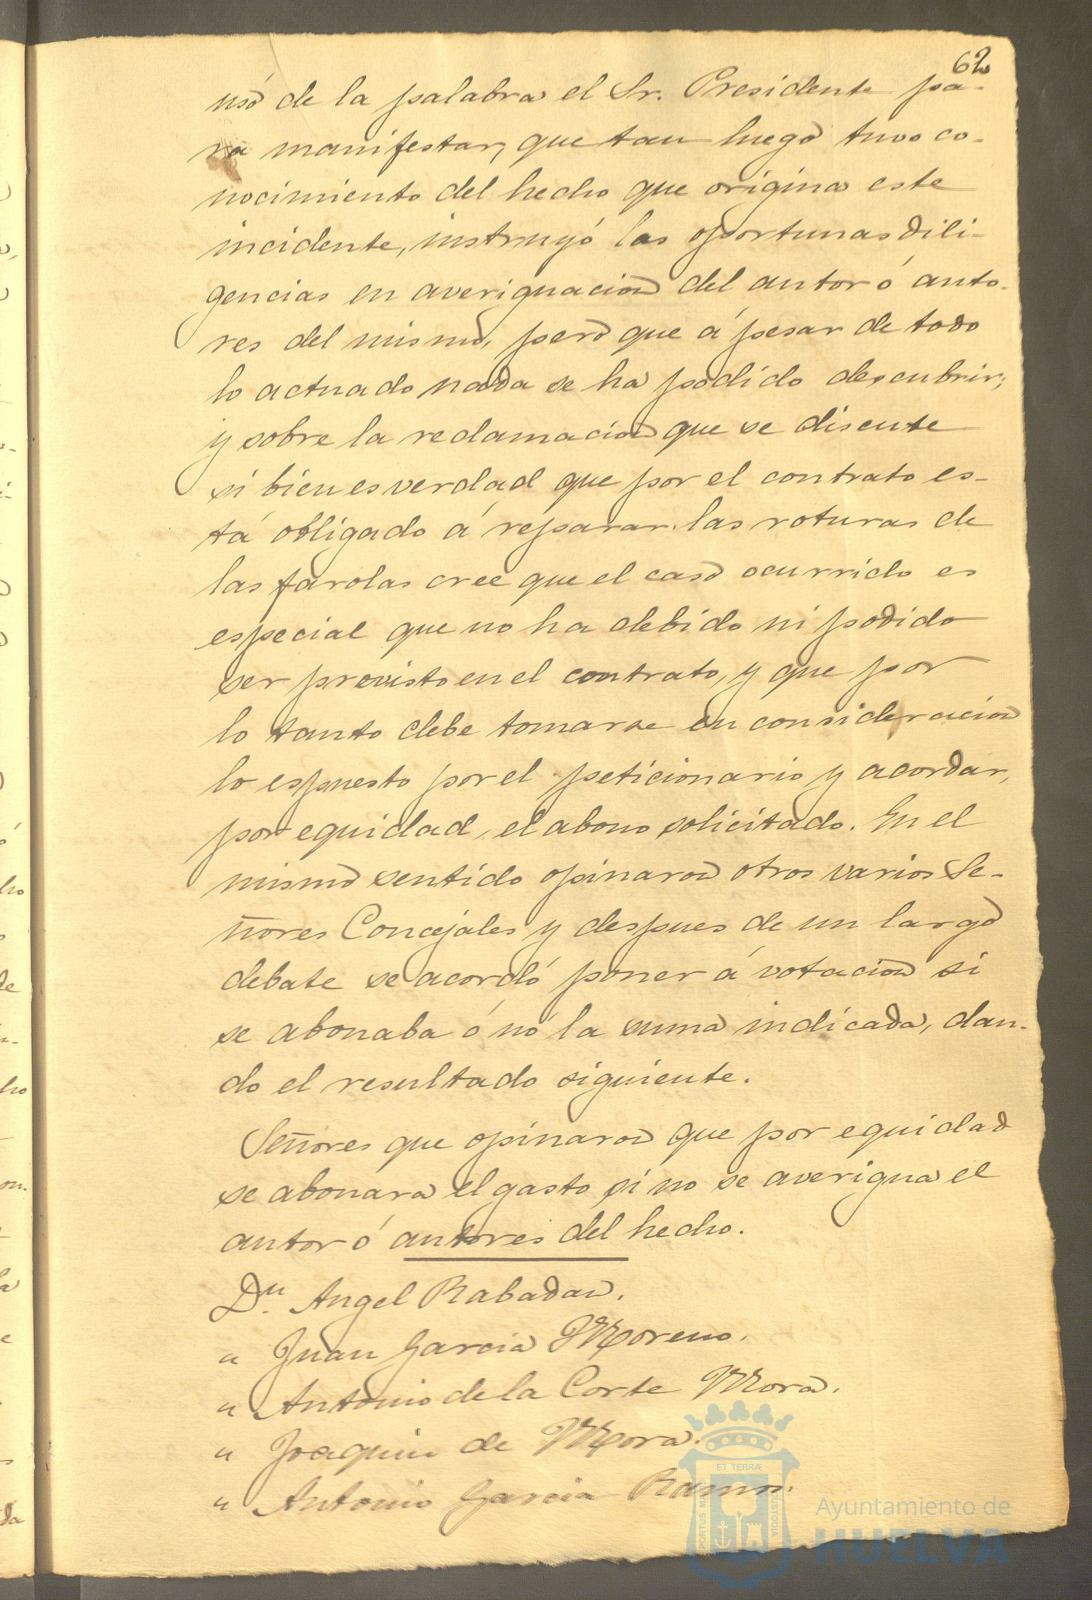 62
usó de la palabra el Sr. Presidente pa-
ra manifestar, que tan luego tuvo co-
nocimiento del hecho que origina este
incidente, instruyó las oportunas dili-
gencias en averiguacion del autor ó auto-
res del mismo, pero que á pesar de todo
lo actuado nada se ha podido descubrir;
y sobre la reclamacion que se discute
si bien es verdad que por el contrato es-
tá obligado á reparar las roturas de
las farolas cree que el caso ocurrido es
especial que no ha debido ni podido
ser previsto en el contrato, y que por
lo tanto debe tomarse en consideracion
lo espuesto por el peticionario y acordar,
por equidad, el abono solicitado. En el
mismo sentido opinaron otros varios Se-
ñores Concejales y despues de un largo
debate se acordó poner á votacion si
se abonaba ó nó la suma indicada, dan-
do el resultado siguiente.
Señores que opinaron que por equidad
se abonara el gasto si no se averigua el
autor ó autores del hecho.
Dn. Angel Rabadan.
" Juan Garcia Moreno.
" Antonio de la Corte Mora.
" Joaquin de Mora.
" Antonio Garcia Ramos.
ET TERRÆ
PORTUS MARIS
CUSTODIA
Ayuntamiento de
HUELVA